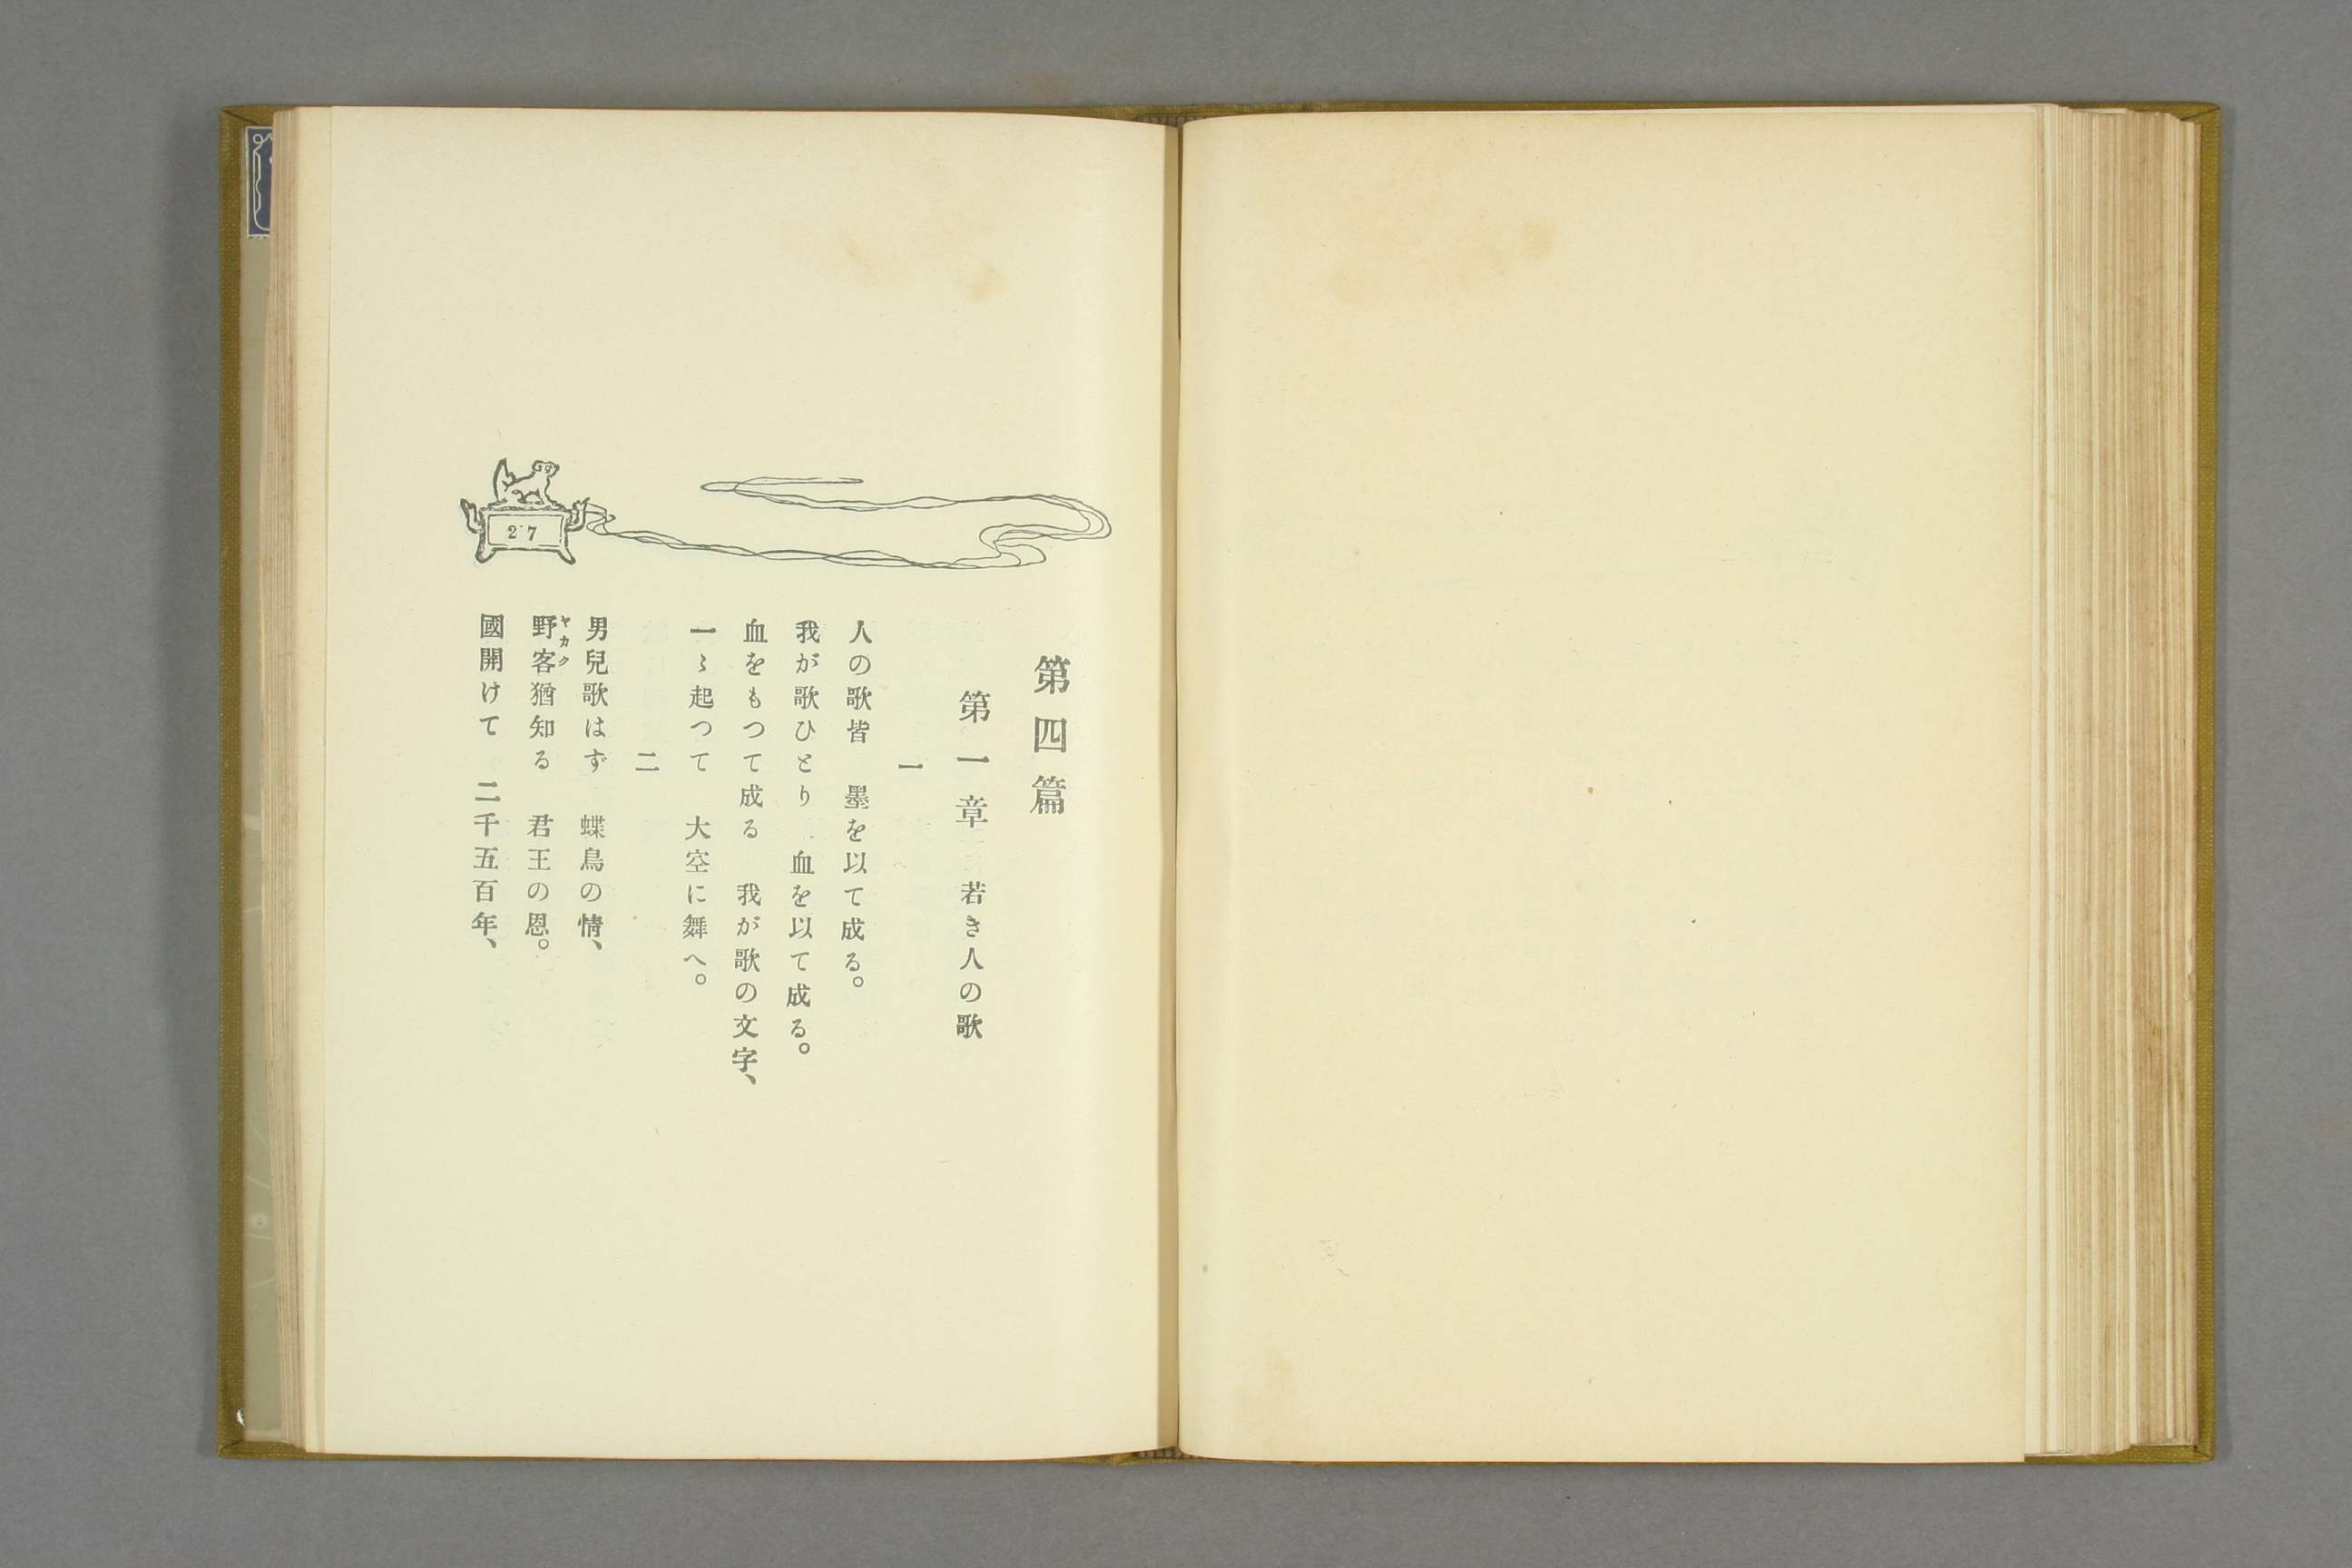 第四篇
第一章 若き人の歌
一
人の歌皆 墨を以て成る。
我が歌ひとり 血を以て成る。
血をもつて成る 我が歌の文字、
一〻起つて 大空に舞へ。
二
男兒歌はず 蝶鳥の情、
野客猶知る 君王の恩。
ヤカク
國開けて 二千五百年、
27